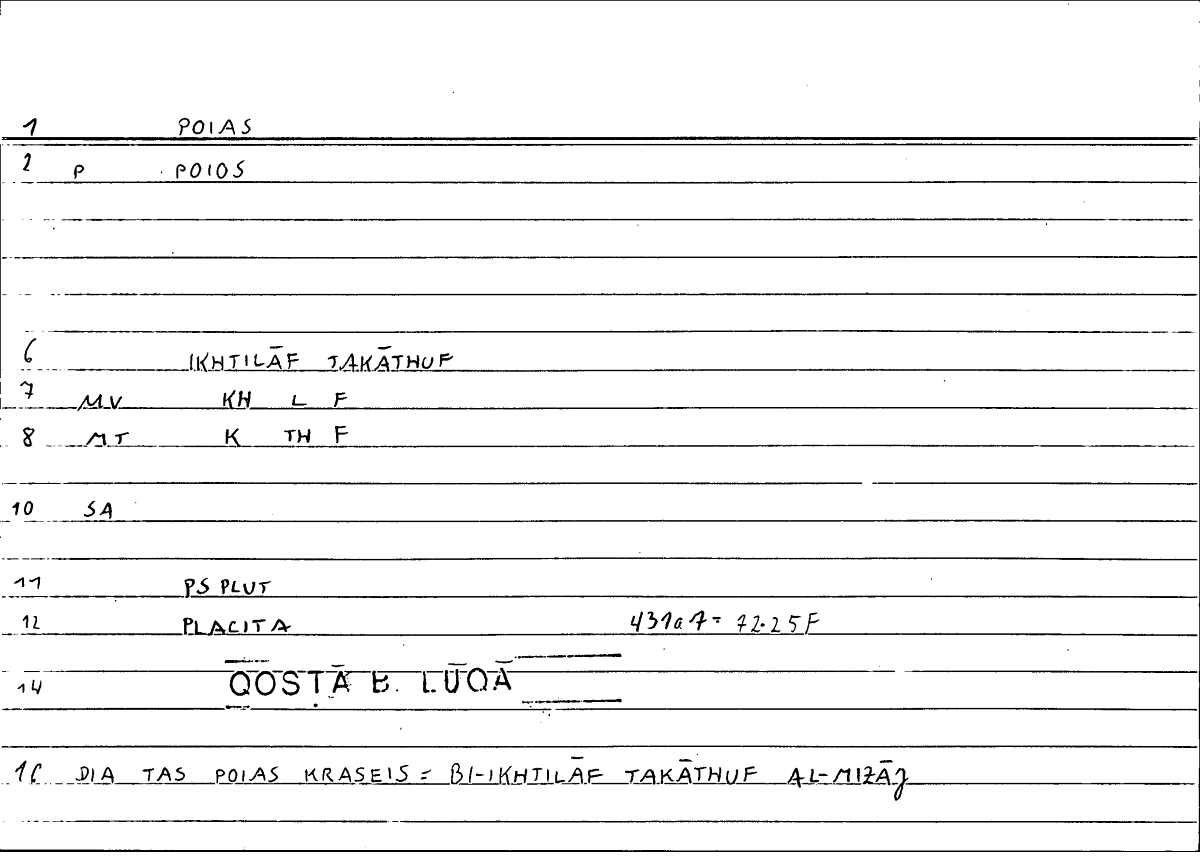 1 POIAS
2 P POIOS
6 IKHTILĀF TAKĀTHUF
7 MV KH L F
8 MT K TH F
10 SA
11 PS PLUT
12 PLACITA 431a7 = 72.25F
14 QOSṬĀ B. LŪQĀ
16 DIA TAS POIAS KRASEIS = BI-IKHTILĀF TAKĀTHUF AL-MIZĀJ